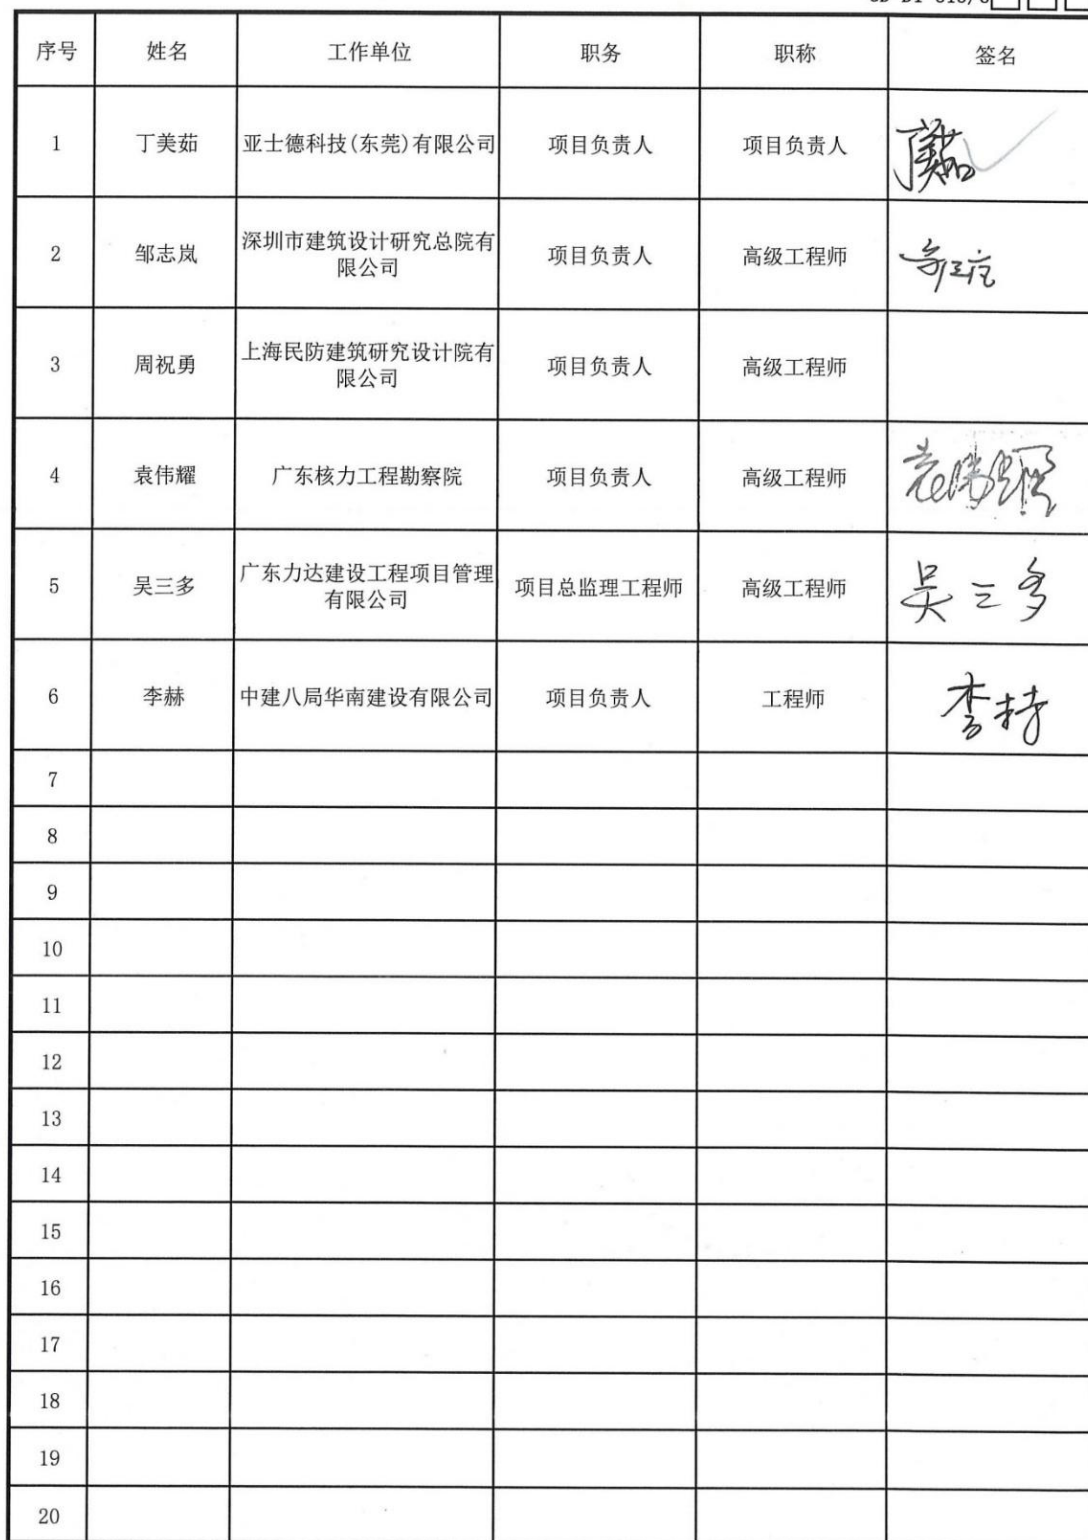 序号 姓名 工作单位 职务 职称 签名
1 丁美茹 亚士德科技(东莞)有限公司 项目负责人 项目负责人 丁美茹
2 邹志岚 深圳市建筑设计研究总院有
限公司 项目负责人 高级工程师
3 周祝勇 上海民防建筑研究设计院有
限公司 项目负责人 高级工程师
4 袁伟耀 广东核力工程勘察院 项目负责人 高级工程师
5 吴三多 广东力达建设工程项目管理
有限公司 项目总监理工程师 高级工程师 吴三多
6 李赫 中建八局华南建设有限公司 项目负责人 工程师
7
8
9
10
11
12
13
14
15
16
17
18
19
20